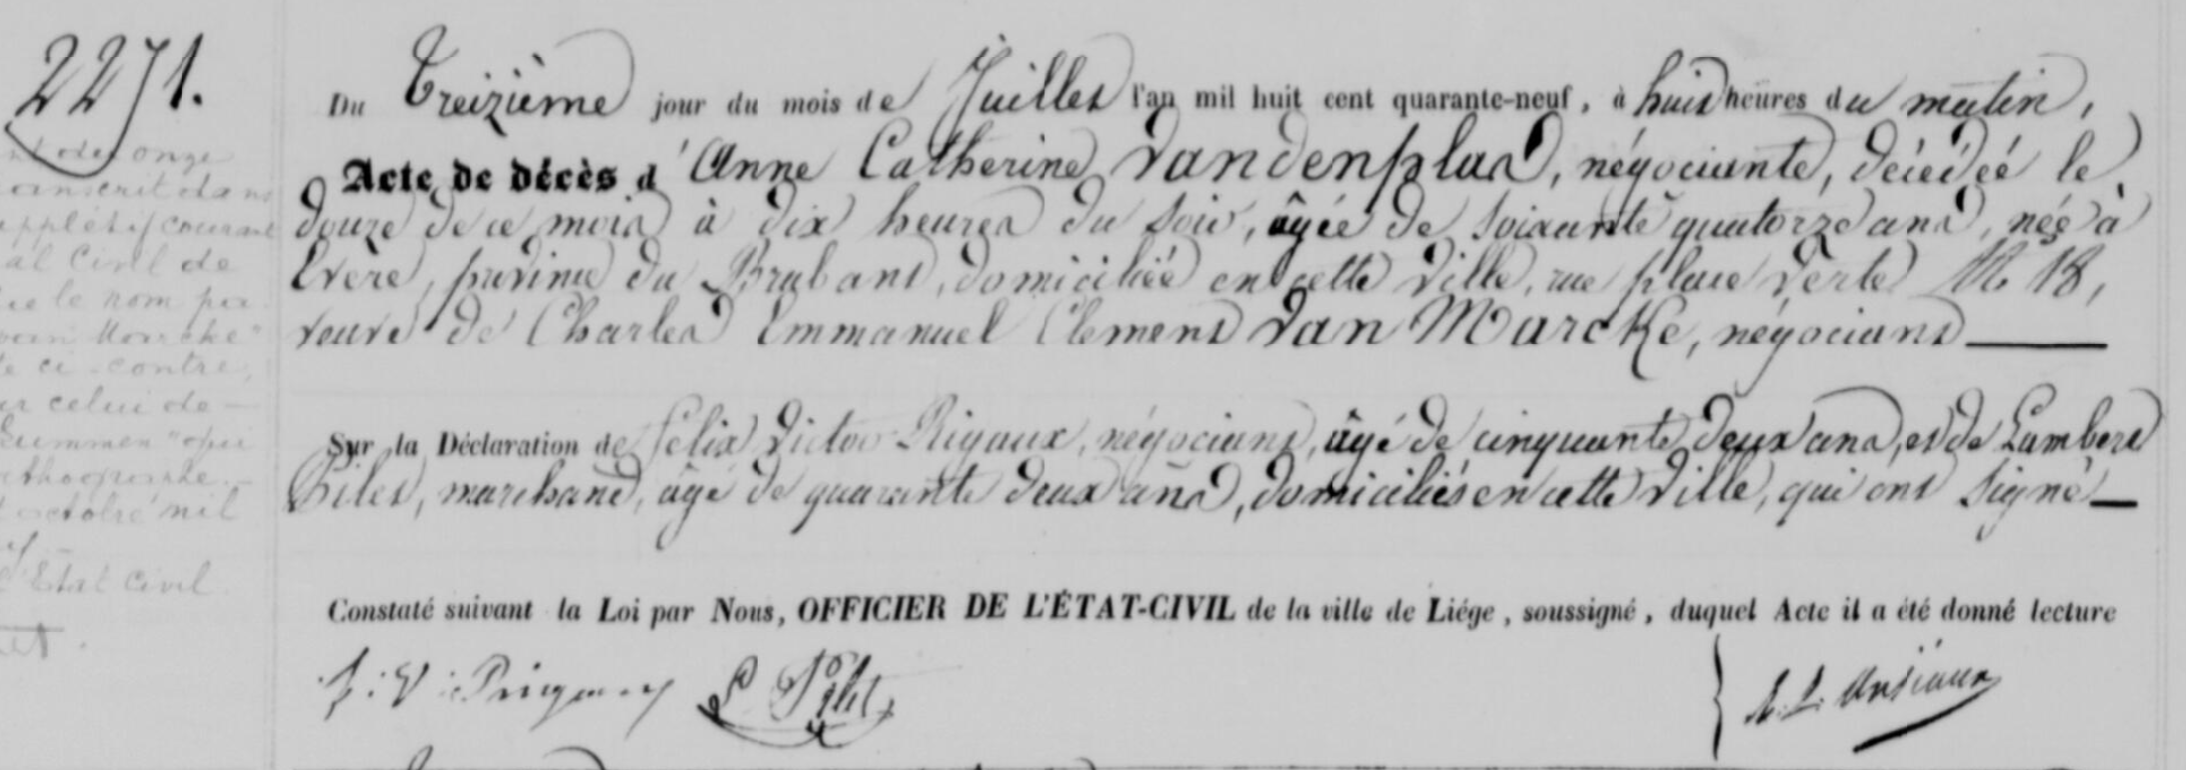 2271.
Du Treizième jour du mois de Juillet l'an mil huit cent quarante-neuf, à huit heures du matin,
Acte de décès d'Anne Catherine Vandenplas, négociante, décédée le
douze de ce mois à dix heures du soir, âgée de soixante quatorze ans, née à
Evère, province du Brabant, domiciliée en cette Ville, rue place Verte No 18,
veuve de Charles Emmanuel Clement Van Marcke, négociant
Sur la Déclaration de Felix Victor Rigaux, négociant, âgé de cinquante deux ans, et de Lambert
Pilet, marchand, âgé de quarante deux ans, domiciliés en cette Ville, qui ont signé
Constaté suivant la Loi par Nous, OFFICIER DE L'ÉTAT-CIVIL de la ville de Liége, soussigné, duquel Acte il a été donné lecture
onze
dans
courant
al Civil de
le nom pa
ci-contre,
celui de
octobre mil
Etat Civil